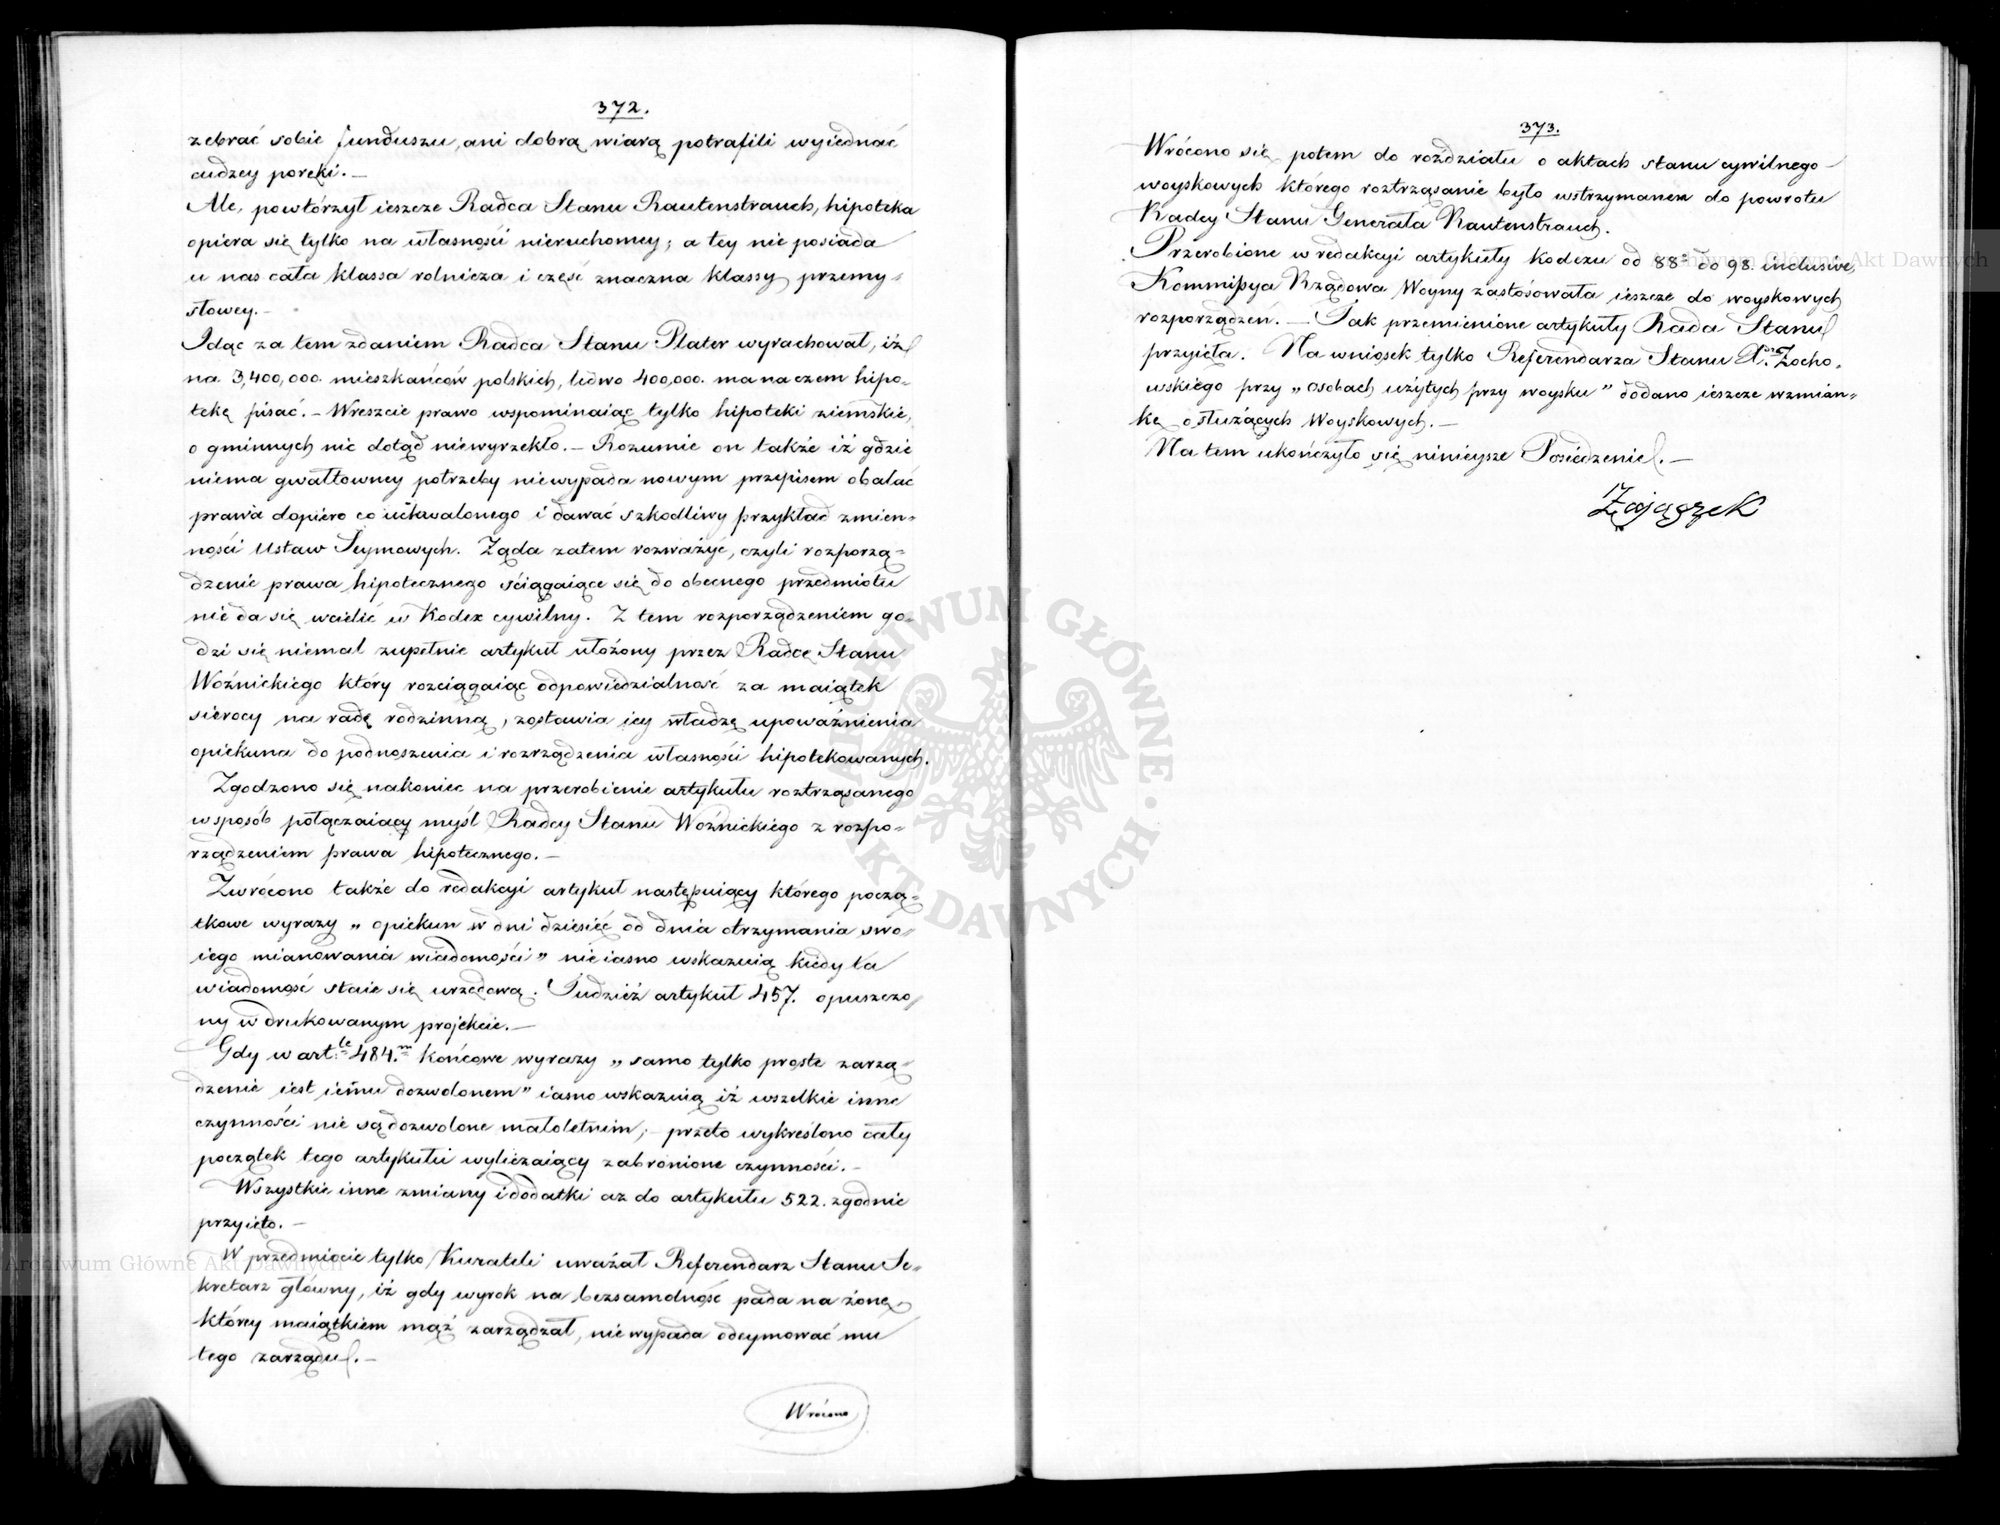 372.
zebrać sobie funduszu, ani dobrą wiarą potrafili wyiednać
cudzey poręki. —
Ale, powtórzył ieszcze Radca Stanu Rautenstrauch, hipoteka
opiera się tylko na własności nieruchomey; a tey nie posiada
u nas cała klassa rolnicza i część znaczna klassy przemy-
słowey. —
Idąc za tem zdaniem Radca Stanu Plater wyrachował, iż
na 3,400,000. mieszkańców polskich, ledwo 400,000. ma na czem hipo-
tekę pisać. — Wreszcie prawo wspominaiąc tylko hipoteki ziemskie,
o gminnych nic dotąd niewyrzekło. — Rozumie on także iż gdzie
niema gwałtowney potrzeby niewypada nowym przepisem obalać
prawa dopiero co uchwalonego i dawać szkodliwy przykład zmien-
ności Ustaw Seymowych. Żąda zatem rozważyć, czyli rozporzą-
dzenie prawa hipotecznego ściągaiące się do obecnego przedmiotu
nie da się wcielić w Kodex cywilny. Z tem rozporządzeniem go-
dzi się niemal zupełnie artykuł ułożony przez Radcę Stanu
Woźnickiego który rozciągaiąc odpowiedzialność za maiątek
sierocy na radę rodzinną, zostawia iey władzę upoważnienia
opiekuna do podnoszenia i rozrządzenia własności hipotekowanych.
Zgodzono się nakoniec na przerobienie artykułu roztrząsanego
w sposób połączaiący myśl Radcy Stanu Woźnickiego z rozpo-
rządzeniem prawa hipotecznego. —
Zwrócono także do redakcyi artykuł następuiący którego począ-
tkowe wyrazy „opiekun w dni dziesięć od dnia otrzymania swo-
iego mianowania wiadomości" nieiasno wskazuią kiedy ta
wiadomość staie się urzędową. Tudzież artykuł 457. opuszczo-
ny w drukowanym projekcie. —
Gdy w art:le 484.m końcowe wyrazy „samo tylko proste zarzą-
dzenie iest iemu dozwolonem" iasno wskazuią iż wszelkie inne
czynności nie są dozwolone małoletnim; — przeto wykreślono cały
początek tego artykułu wyliczaiący zabronione czynności. —
Wszystkie inne zmiany i dodatki aż do artykułu 522. zgodnie
przyięto. —
W przedmiocie tylko Kurateli uważał Referendarz Stanu Se-
kretarz główny, iż gdy wyrok na bezsamolność pada na żonę,
którey maiątkiem mąż zarządzał, nie wypada odeymować mu
tego zarządu. —
Wrócono
373.
Wrócono się potem do rozdziału o aktach stanu cywilnego
woyskowych którego roztrząsanie było wstrzymanem do powrotu
Radcy Stanu Generała Rautenstrauch.
Przerobione w redakcyi artykuły kodexu od 88o do 98. inclusive,
Kommissya Rządowa Woyny zastosowała ieszcze do woyskowych
rozporządzeń. — Tak przemienione artykuły Rada Stanu
przyięła. Na wniosek tylko Referendarza Stanu Zocho-
wskiego przy „osobach użytych przy woysku" dodano ieszcze wzmian-
kę o służących Woyskowych. —
Na tem ukończyło się ninieysze Posiedzenie. —
Zajączek
ARCHIWUM GŁÓWNE AKT DAWNYCH
Archiwum Główne Akt Dawnych
Archiwum Główne Akt Dawnych